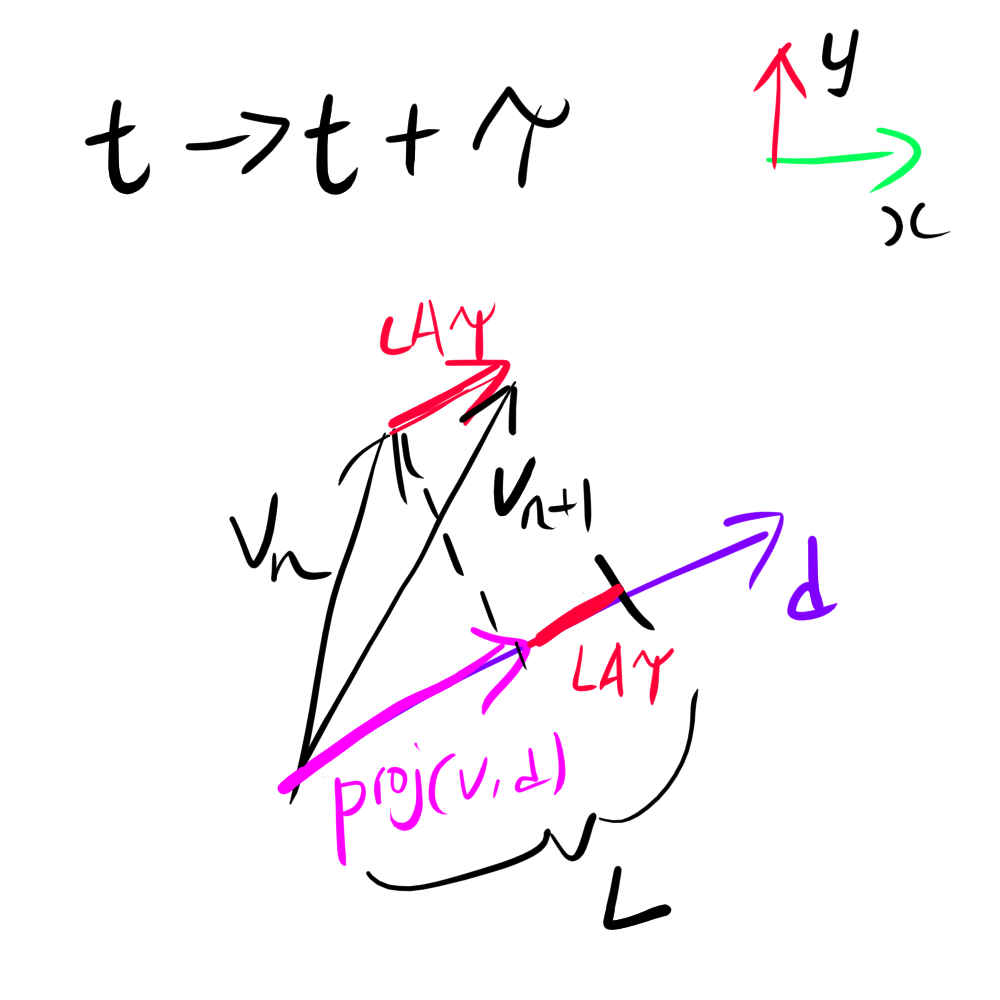 t → t + τ
y
x
LAτ
Vₙ
Vₙ₊₁
d
LAτ
proj(v,d)
L